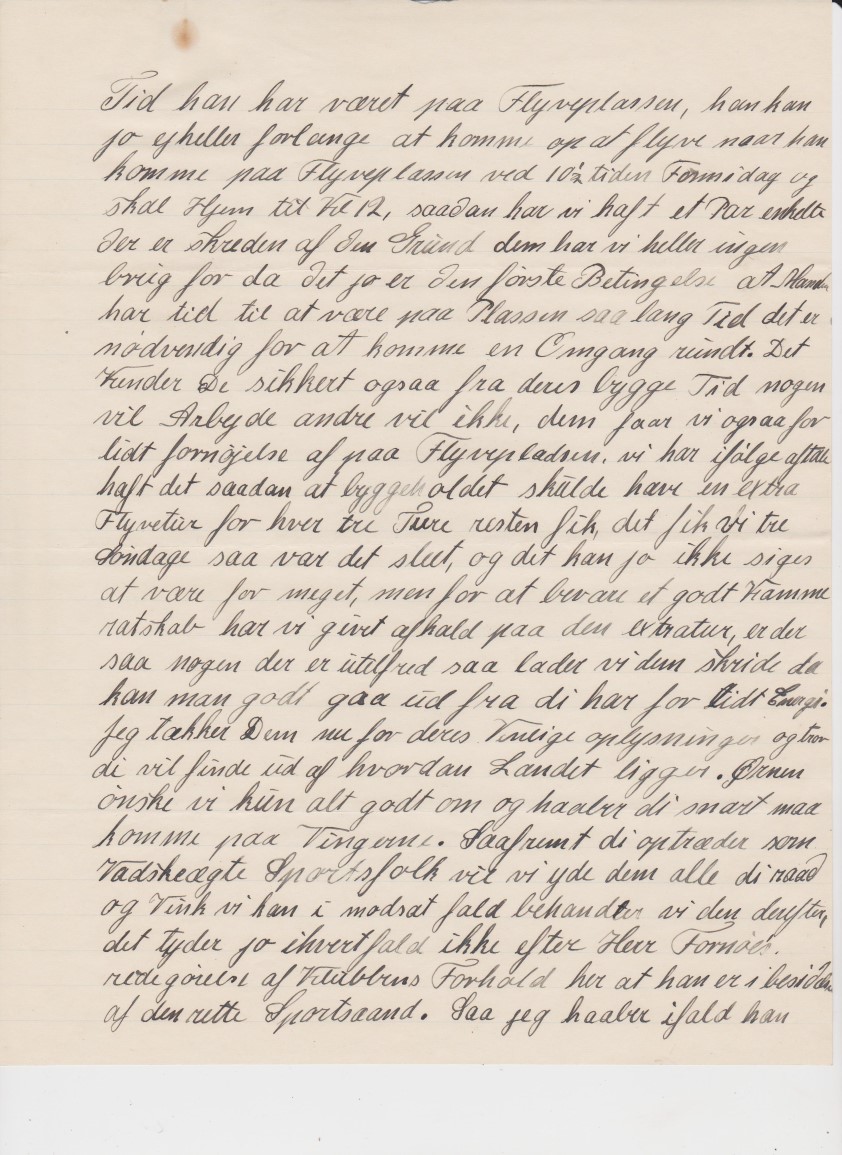 Tid han har været paa Flyveplassen, han kan
jo ejheller forlange at komme op at flyve naar han
komme paa Flyveplassen ved 10½ tiden Formidag og
skal Hjem til Kl 12, saadan har vi haft et Par enkelte
der er skreden af den Grund dem har vi heller ingen
brug for da det jo er den første Betingelse at Manden
har tid til at være paa Plassen saa lang Tid det er
nødvendig for at komme en Omgang rundt. Det
Kender De sikkert ogsaa fra deres bygge Tid nogen
vil Arbejde andre vil ikke, dem faar vi ogsaa for
lidt fornøjelse af paa Flyvepladsen. vi har ifølge aftale
haft det saadan at byggeholdet skulde have en extra
Flyvetur for hver tre Ture resten fik, det fik vi tre
Söndage saa var det slut, og det kan jo ikke siges
at være for meget, men for at bevare et godt Kamme
ratskab har vi givet afkald paa den extratur, er der
saa nogen der er utilfred saa lader vi dem skride da
kan man godt gaa ud fra di har for lidt Energi.
Jeg takker Dem nu for deres Venlige oplysninger og tror
di vil finde ud af hvordan Landet ligger. Ørnen
ønske vi kun alt godt om og haaber di snart maa
komme paa Vingerne. Saafremt di optræder som
Vadskeægte Sportsfolk vil vi yde dem alle di raad
og Vink vi kan i modsat fald behandler vi den derefter,
det tyder jo ihvertfald ikke efter Herr
redegörelse af Klubbens Forhold her at han er i besiddelse
af den rette Sportsaand. Saa jeg haaber ifald han